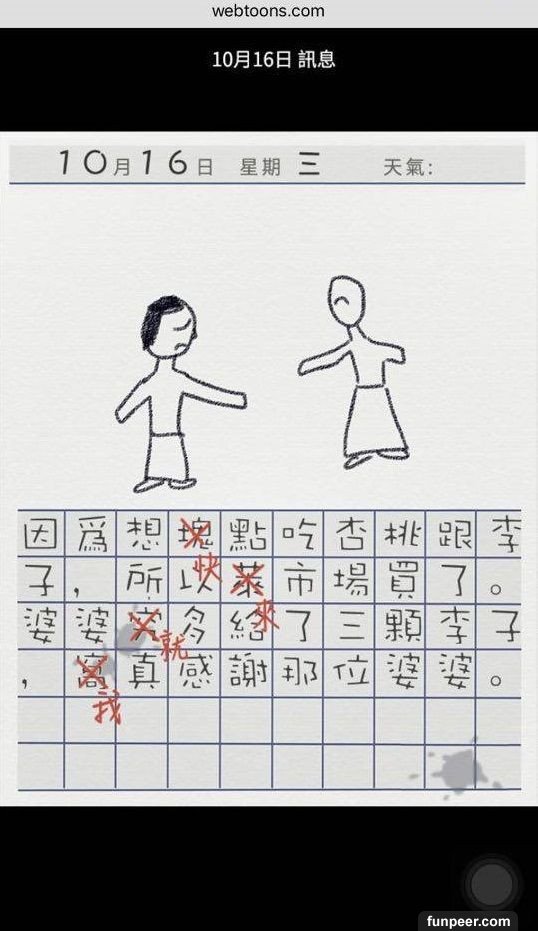 webtoons.com
10月16日 訊息
10月16日 星期 三 天氣:
因為想塊點吃杏桃跟李
快
子，所以萊市場買了。
來
婆婆多給了三顆李子
就
，窩真感謝那位婆婆。
找
funpeer.com